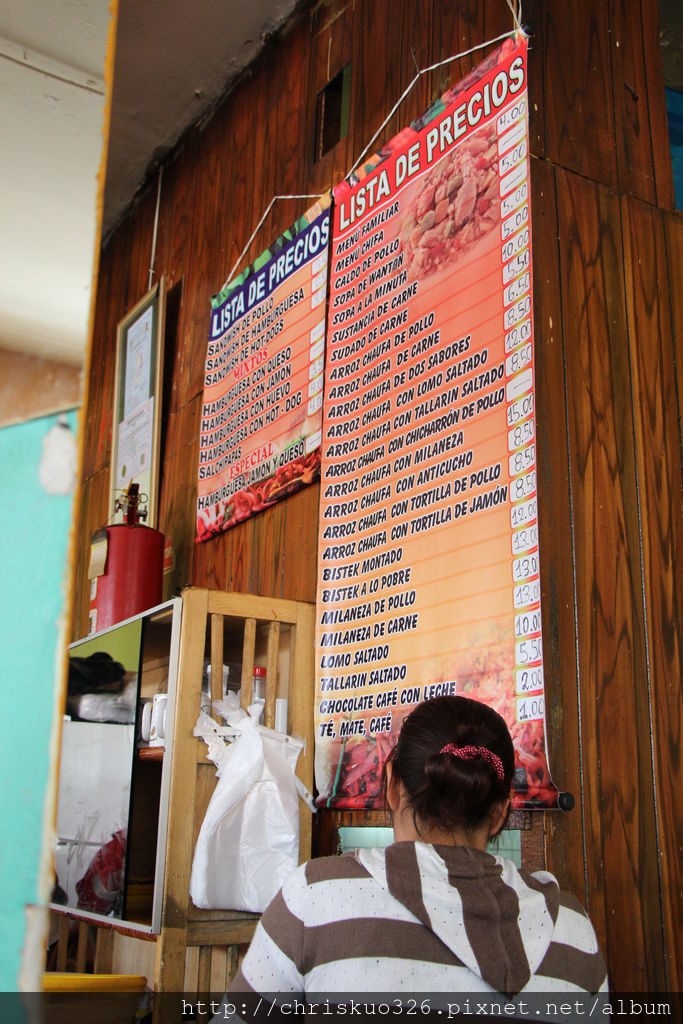 LISTA DE PRECIOS
SANDWISH DE POLLO
SANDWISH DE HAMBURGUESA
SANDWISH DE HOT-DOGS
MIXTOS
HAMBURGUESA CON QUESO
HAMBURGUESA CON JAMON
HAMBURGUESA CON HUEVO
HAMBURGUESA CON HOT - DOG
SALCHIPAPAS
ESPECIAL
HAMBURGUESA, JAMON Y QUESO
LISTA DE PRECIOS
MENÚ FAMILIAR 4.00
MENÚ CHIFA —
CALDO DE POLLO 5.00
SOPA DE WANTAN —
SOPA A LA MINUTA 5.00
SUSTANCIA DE CARNE 5.00
SUDADO DE CARNE 10.00
ARROZ CHAUFA DE POLLO 5.50
ARROZ CHAUFA DE CARNE 6.50
ARROZ CHAUFA DE DOS SABORES 8.50
ARROZ CHAUFA CON LOMO SALTADO 12.00
ARROZ CHAUFA CON TALLARIN SALTADO 8.50
ARROZ CHAUFA CON CHICHARRÓN DE POLLO —
ARROZ CHAUFA CON MILANEZA 15.00
ARROZ CHAUFA CON ANTICUCHO 8.50
ARROZ CHAUFA CON TORTILLA DE POLLO 8.50
ARROZ CHAUFA CON TORTILLA DE JAMÓN 8.50
BISTEK MONTADO 12.00
BISTEK A LO POBRE 13.00
MILANEZA DE POLLO 13.00
MILANEZA DE CARNE 13.00
LOMO SALTADO 10.00
TALLARIN SALTADO 5.50
CHOCOLATE CAFÉ CON LECHE 2.00
TÉ, MATE, CAFÉ 1.00
http://chriskuo326.pixnet.net/album